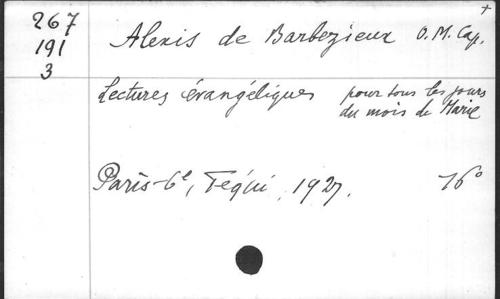 267
191
3
Alexis de Barbezieux O. M. Cap. +
Lectures évangéliques pour tous les jours
du mois de Marie
Paris-6e, Téqui, 1927. 16°